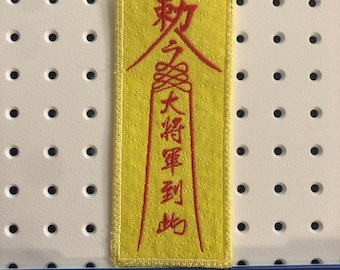 勅
令
大
將
軍
到
此